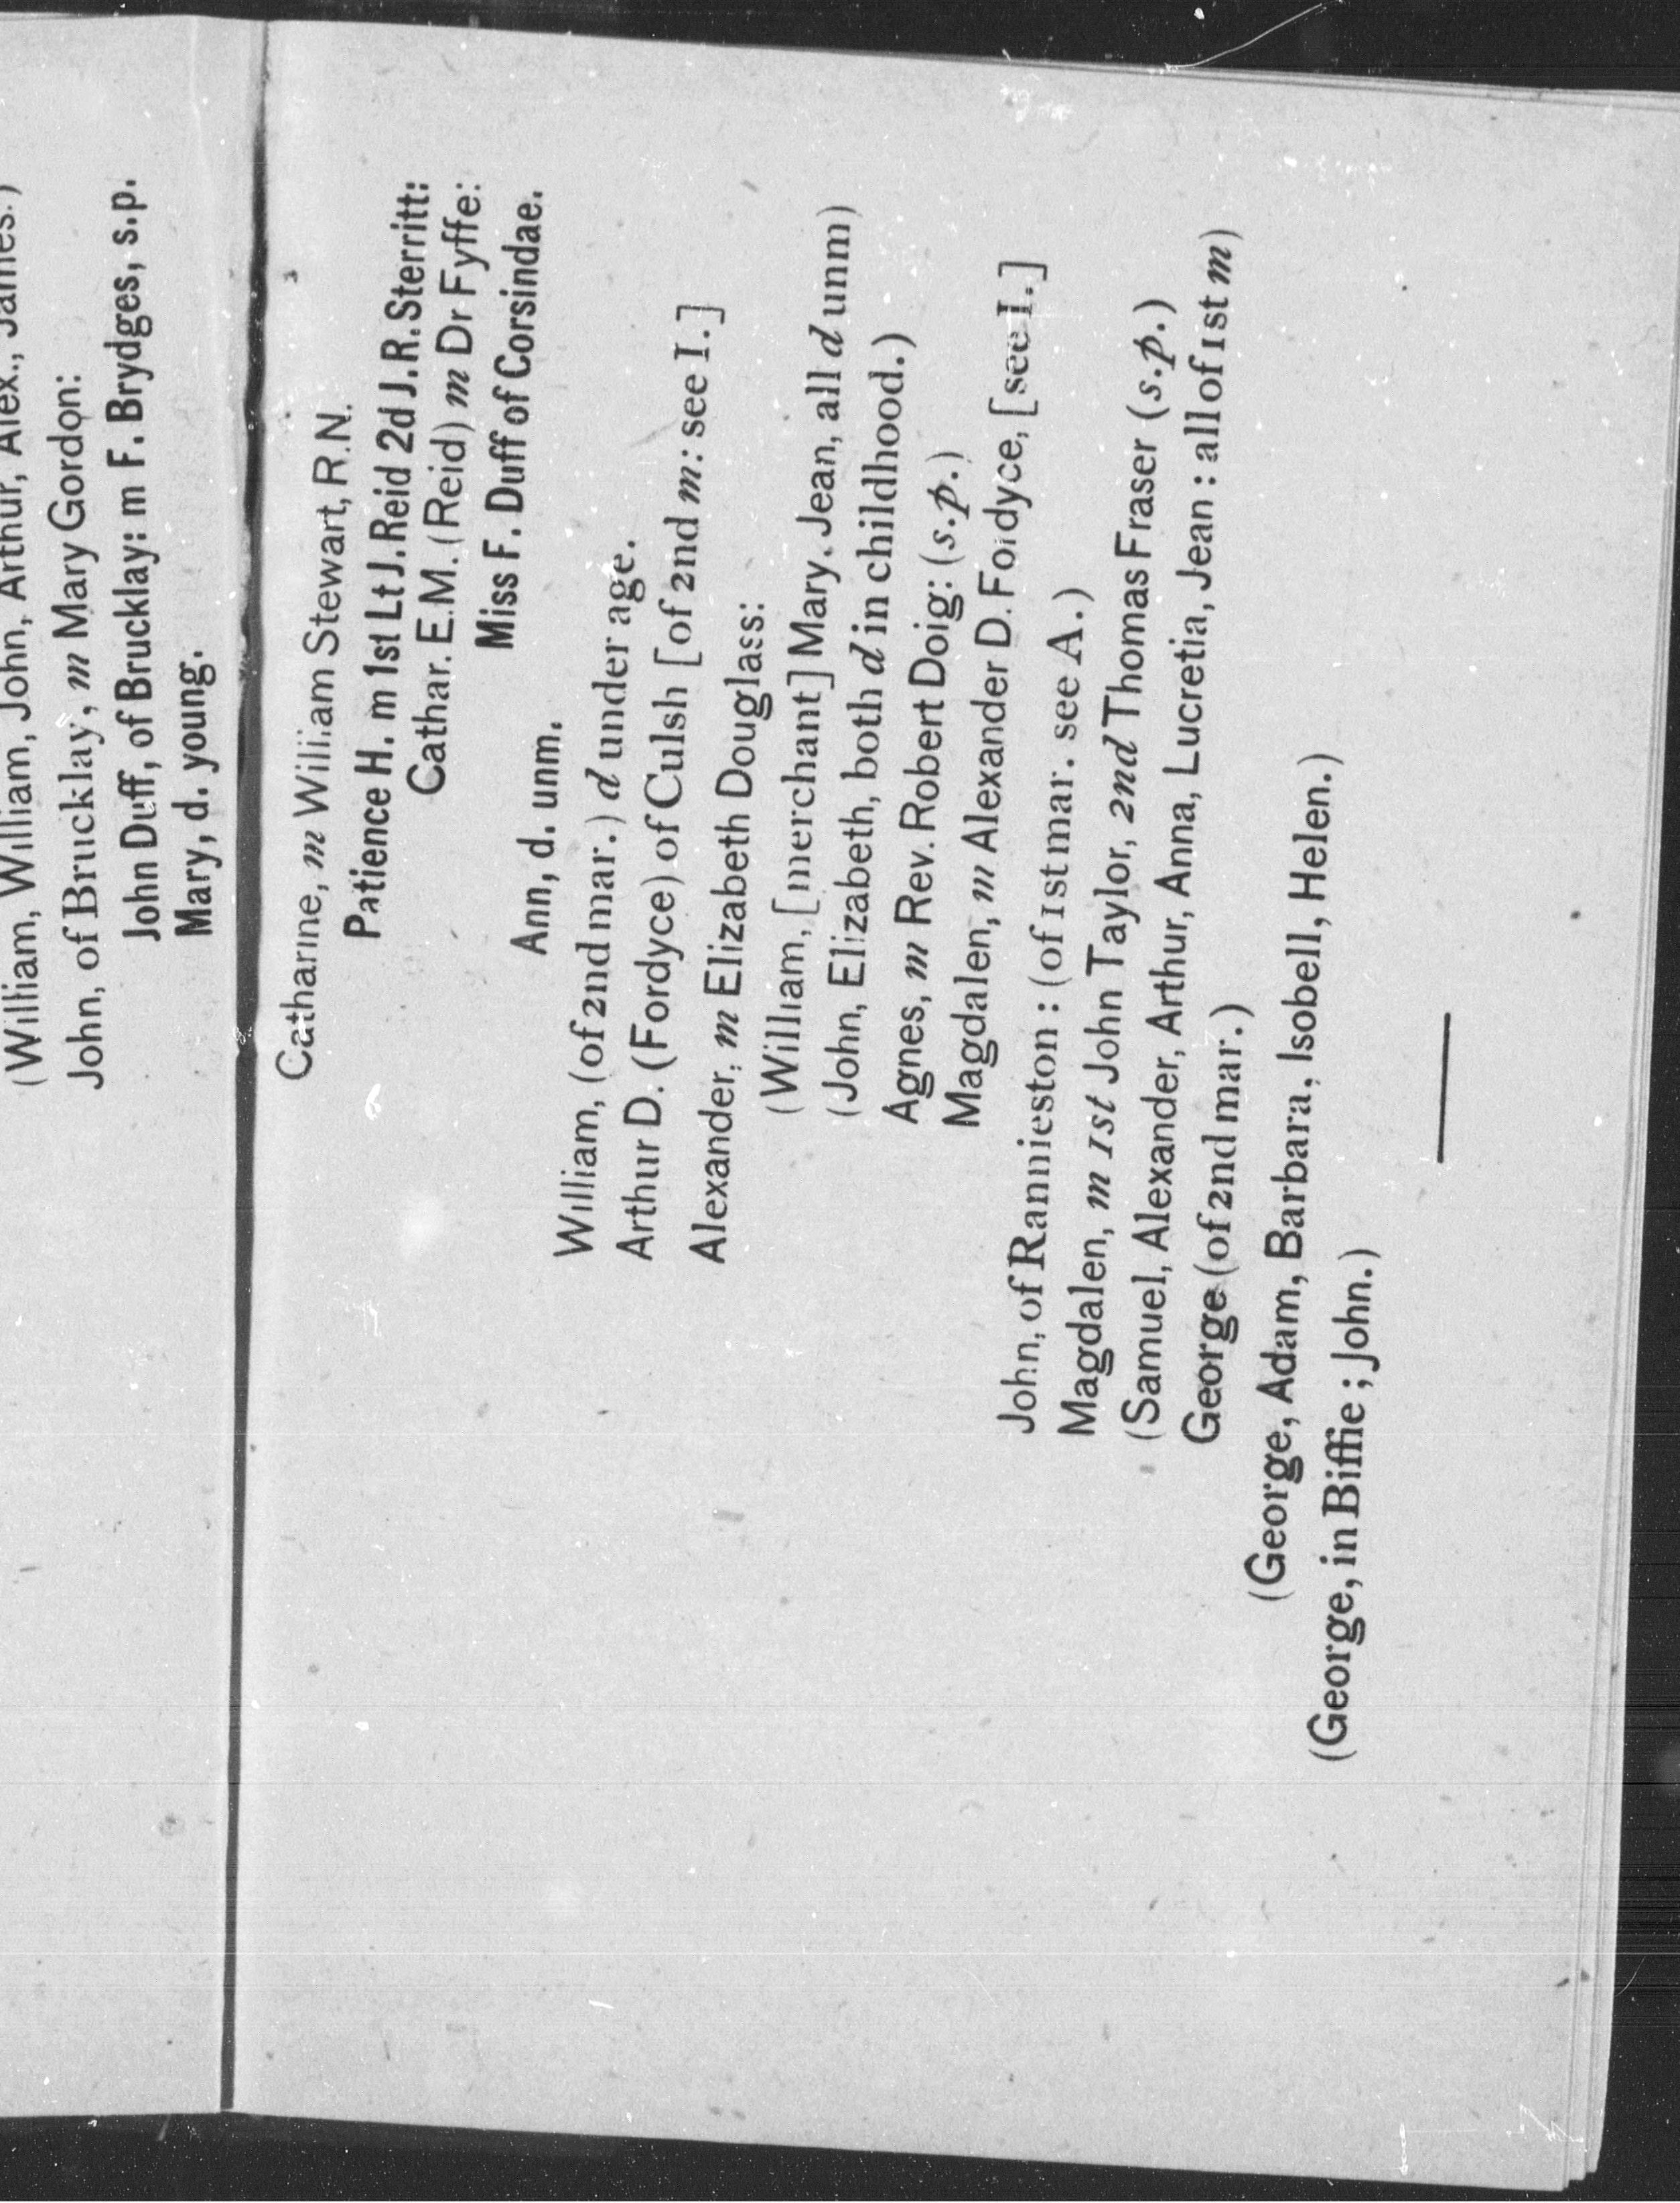 (William, William, John, Arthur, Alex., James.)
John, of Brucklay, m Mary Gordon:
John Duff, of Brucklay: m F. Brydges, s.p.
Mary, d. young.
Catharine, m William Stewart, R.N.
Patience H. m 1st Lt J. Reid 2d J.R. Sterritt:
Cathar. E.M. (Reid) m Dr Fyffe:
Miss F. Duff of Corsindae.
Ann, d. unm.
William, (of 2nd mar.) d under age.
Arthur D. (Fordyce) of Culsh [of 2nd m: see I.]
Alexander, m Elizabeth Douglass:
(William, [merchant] Mary, Jean, all d unm)
(John, Elizabeth, both d in childhood.)
Agnes, m Rev. Robert Doig: (s.p.)
Magdalen, m Alexander D. Fordyce, [see I.]
John, of Rannieston : (of 1st mar. see A.)
Magdalen, m 1st John Taylor, 2nd Thomas Fraser (s.p.)
(Samuel, Alexander, Arthur, Anna, Lucretia, Jean : all of 1st m)
George (of 2nd mar.)
(George, Adam, Barbara, Isobell, Helen.)
(George, in Biffie ; John.)